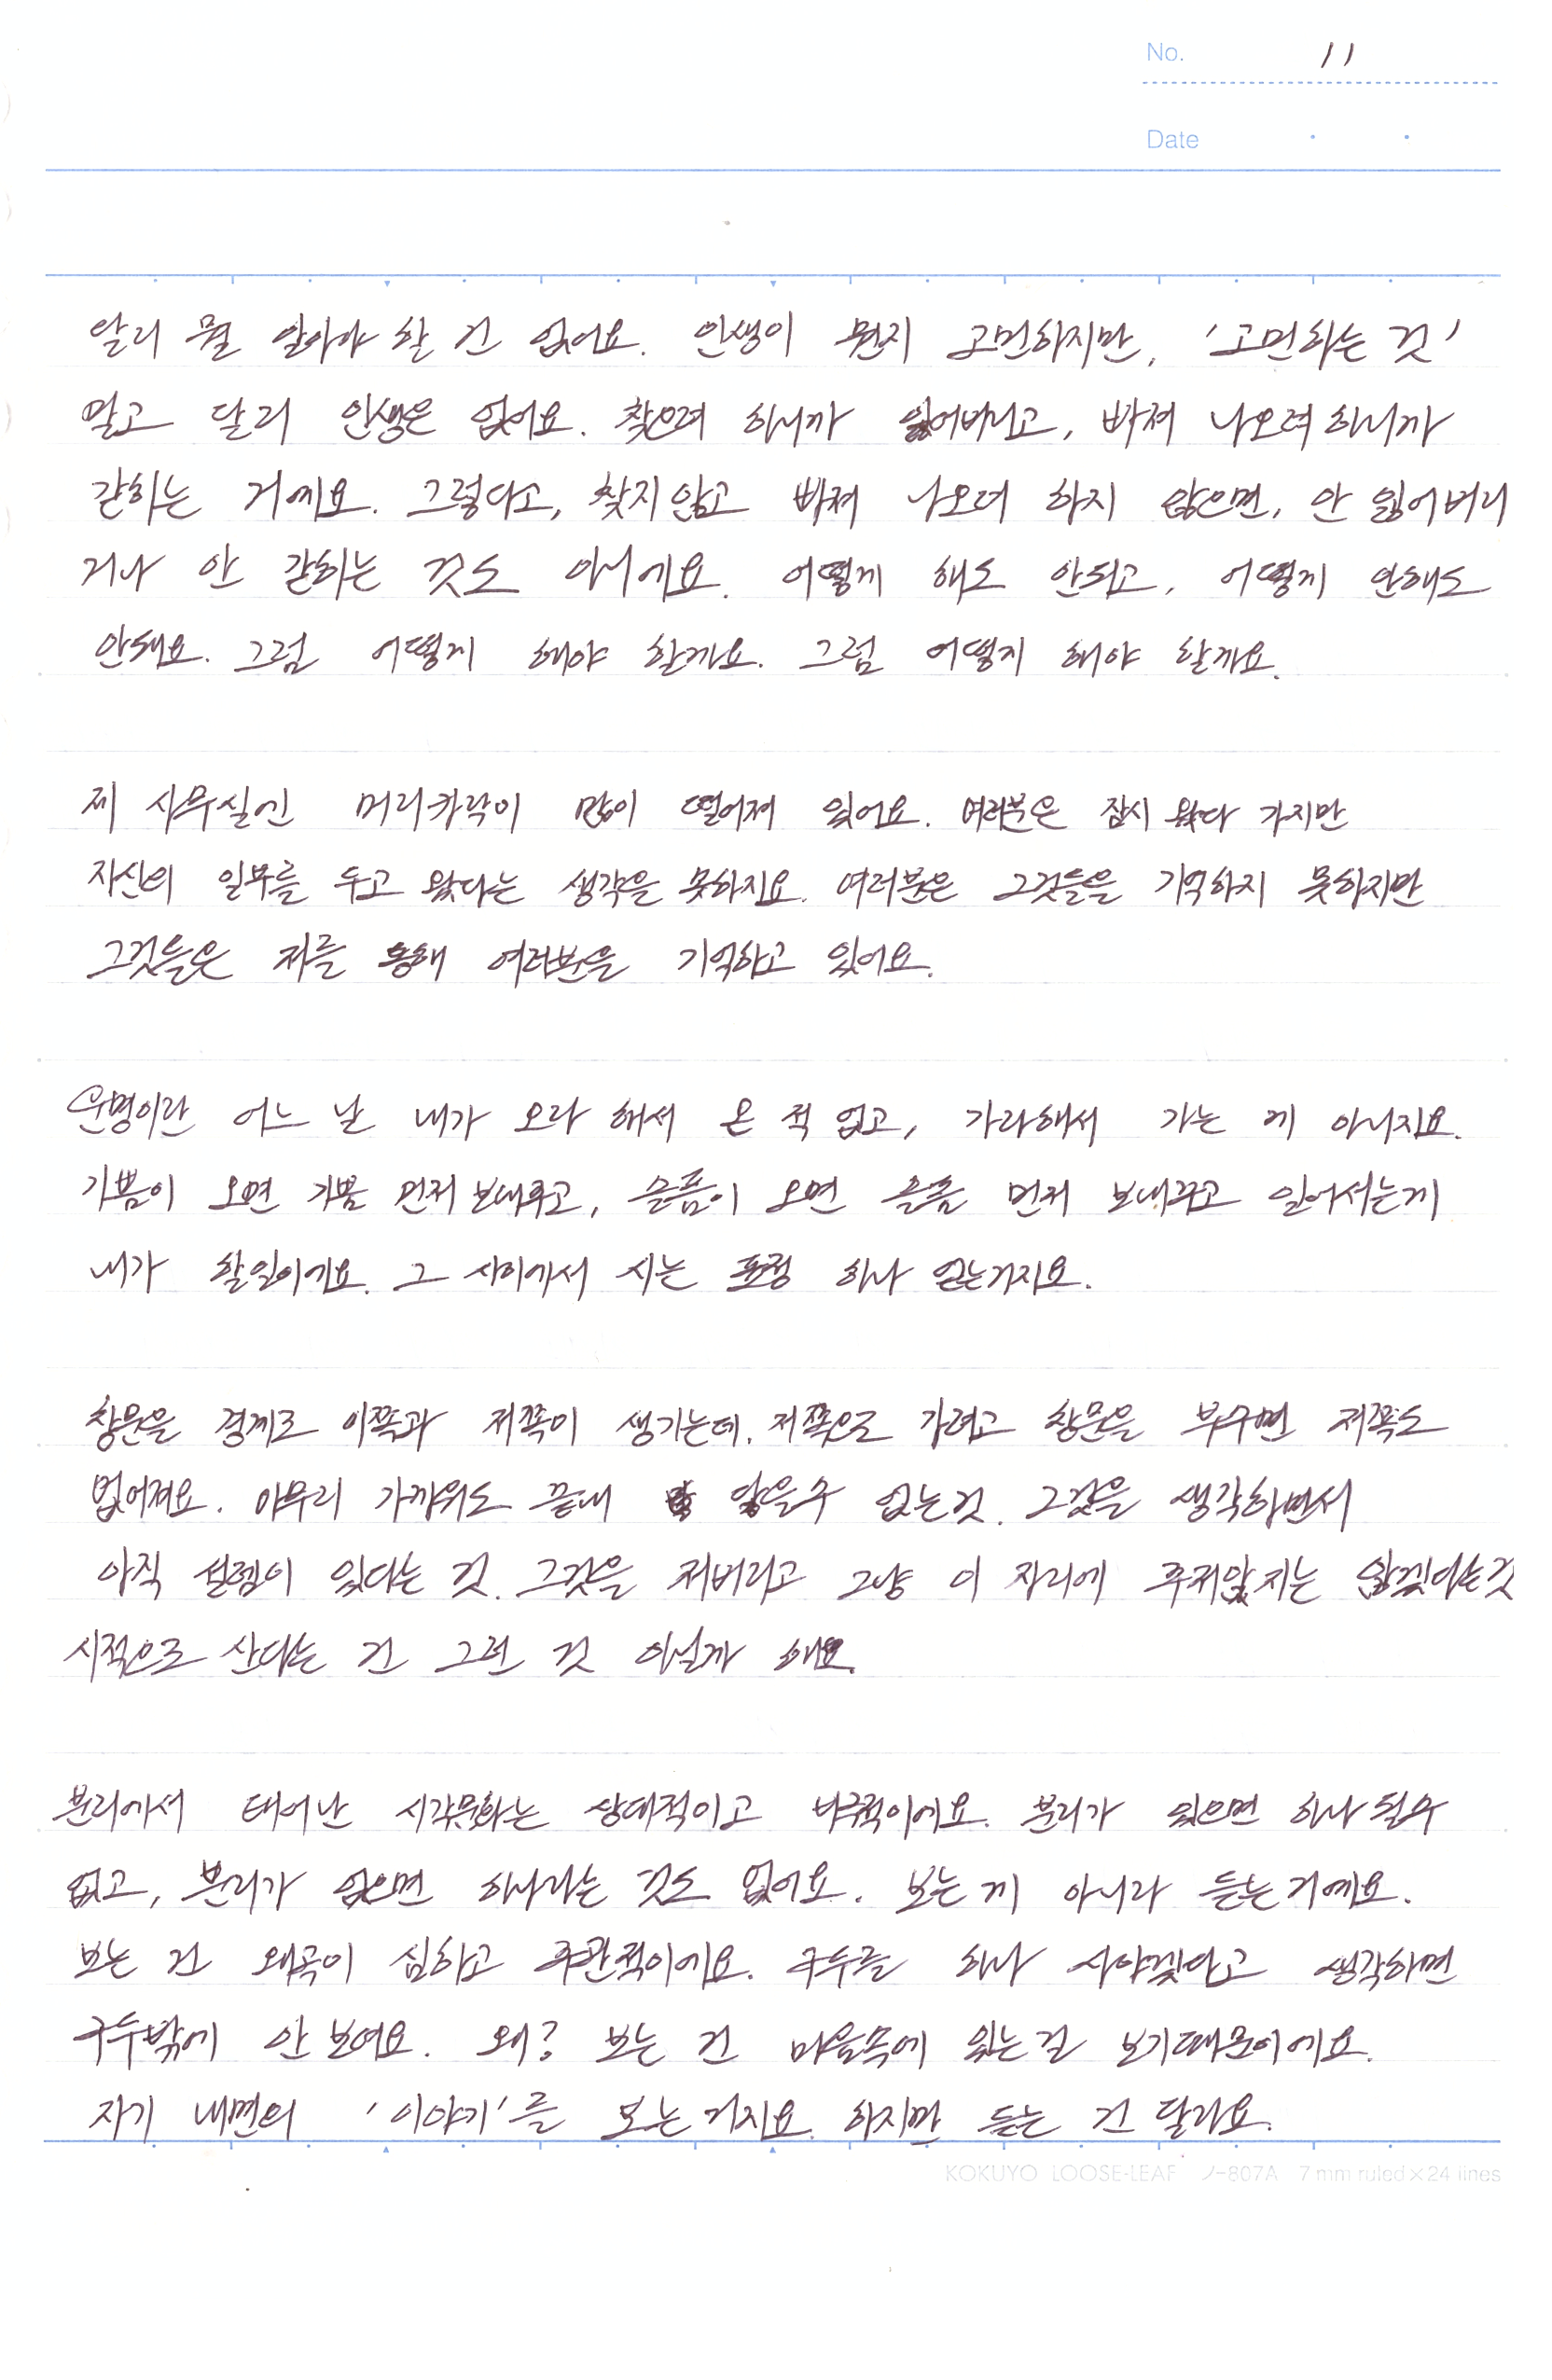 No. 11
Date
달리 뭘 알아야 할 건 없어요. 인생이 뭔지 고민하지만, '고민하는 것'
말고 달리 인생은 없어요. 찾으려 하니까 잃어버리고, 빠져 나오려 하니까
갇히는 거예요. 그렇다고, 찾지 않고 빠져 나오려 하지 않으면, 안 잃어버리
거나 안 갇히는 것도 아니에요. 어떻게 해도 안되고, 어떻게 안해도
안돼요. 그럼 어떻게 해야 할까요. 그럼 어떻게 해야 할까요.
제 사무실엔 머리카락이 많이 떨어져 있어요. 여러분은 잠시 왔다 가지만
자신의 일부를 두고 왔다는 생각을 못하지요. 여러분은 그것들을 기억하지 못하지만
그것들은 저를 통해 여러분을 기억하고 있어요.
운명이란 어느 날 내가 오라 해서 온 적 없고, 가라해서 가는 게 아니지요.
기쁨이 오면 기쁨 먼저 보내주고, 슬픔이 오면 슬픔 먼저 보내주고 일어서는게
내가 할일이에요. 그 사이에서 시는 표정 하나 얻는거지요.
창문을 경계로 이쪽과 저쪽이 생기는데, 저쪽으로 가려고 창문을 부수면 저쪽도
없어져요. 아무리 가까워도 끝내 닿을수 없는것. 그것을 생각하면서
아직 설렘이 있다는 것. 그것을 저버리고 그냥 이 자리에 주저앉지는 않겠다는것
시적으로 산다는 건 그런 것 아닐까 해요.
분리에서 태어난 시각문화는 상대적이고 비극적이에요. 분리가 있으면 하나 될수
없고, 분리가 없으면 하나라는 것도 없어요. 보는 게 아니라 듣는거예요.
보는 건 왜곡이 심하고 주관적이에요. 구두를 하나 사야겠다고 생각하면
구두밖에 안 보여요. 왜? 보는 건 마음속에 있는걸 보기때문이에요.
자기 내면의 '이야기'를 보는거지요. 하지만 듣는 건 달라요.
KOKUYO LOOSE-LEAF ノ-807A 7 mm ruled×24 lines